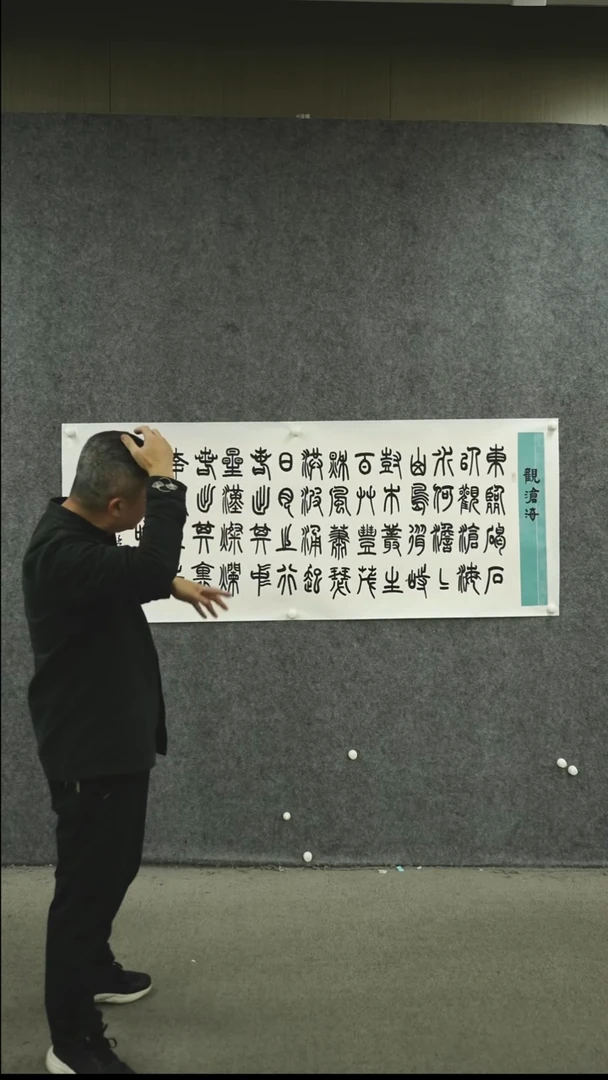 觀滄海
東臨碣石
以觀滄海
水何澹〻
山島竦峙
樹木叢生
百艸豐茂
秋風蕭瑟
洪波涌起
日月之行
若出其中
曐漢燦爛
若出其裏
幸